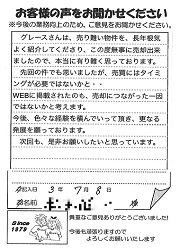 お客様の声をお聞かせください
※今後の業務向上のため、ご意見をお聞かせください
グレースさんは、売り難い物件を、長年根気
よく紹介してくださり、この度無事に売却出来
ましたので、本当に有り難く思っております。
先回の件でも思いましたが、売買にはタイミン
グが必要ではないかと…
WEBに掲載されたのも、売却につながった一因
ではないかと考えます。
今後、色々な経験を積んでいって頂き、更なる
発展を願っております。
次回も、是非お願いしたいと思っています。
ご記入日 3年7月8日
お名前 様
Since
1979
貴重なご意見ありがとうございました!
今後も頑張りますので
よろしくお願いいたします